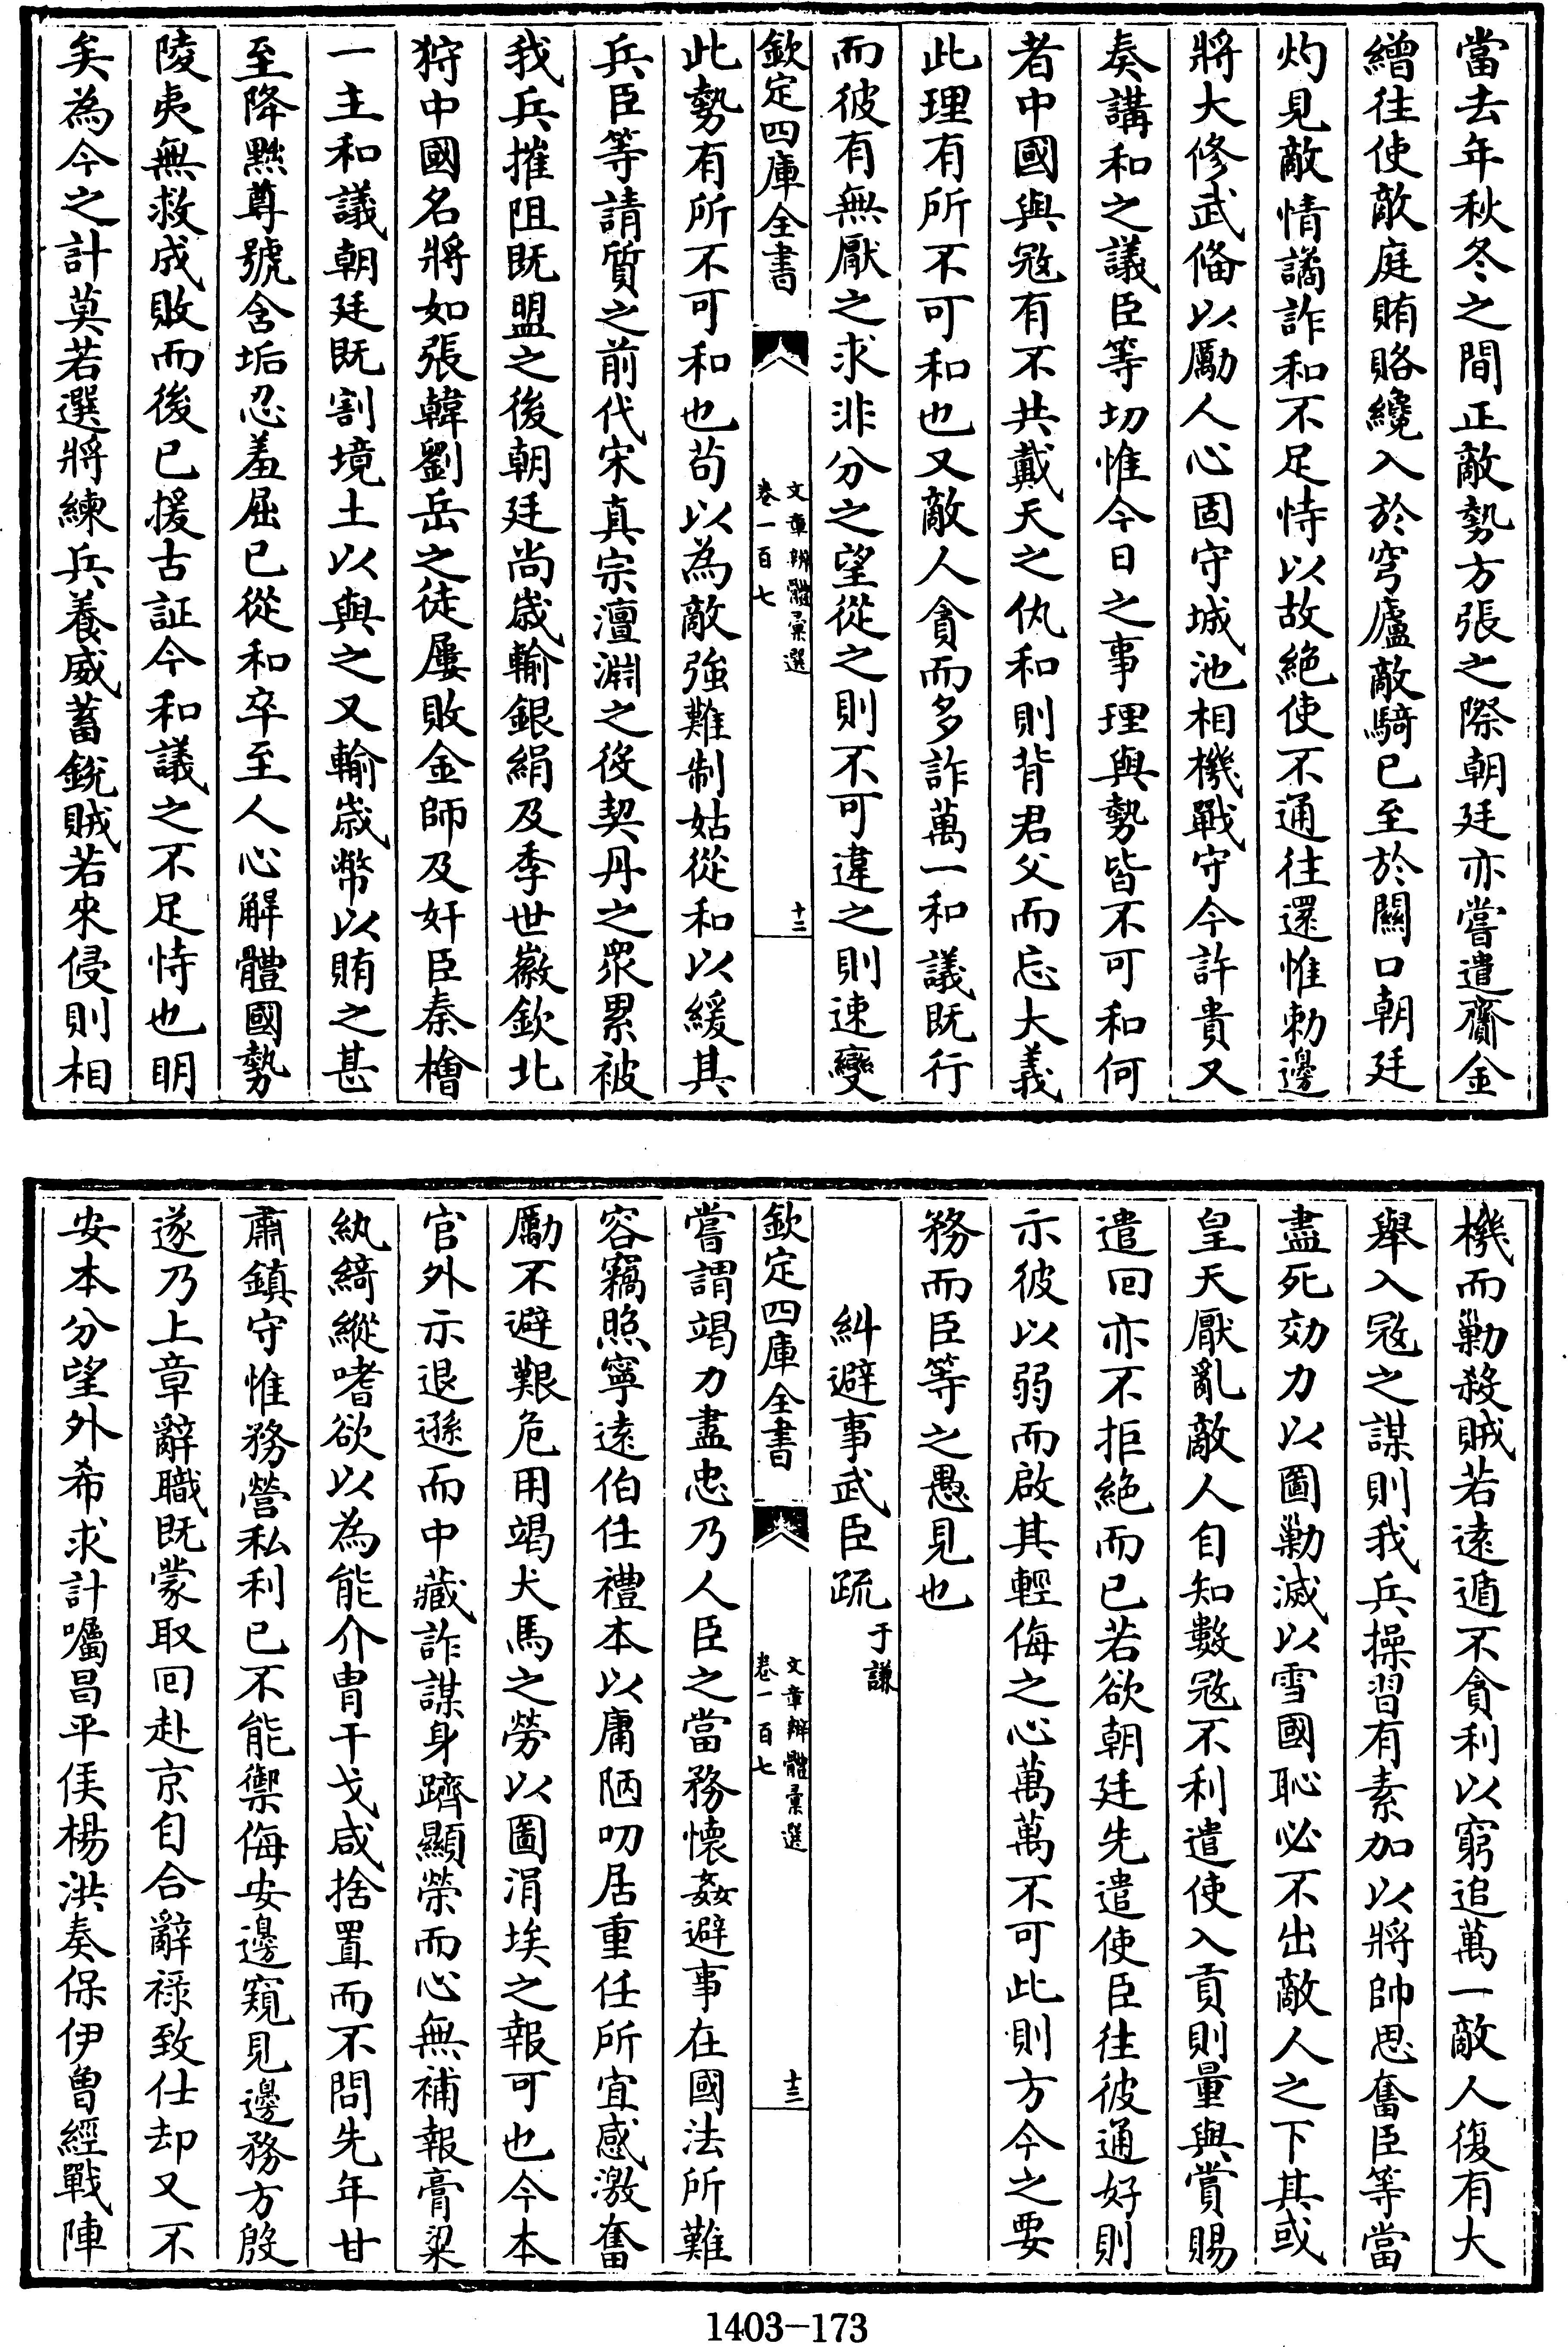 當去年秋冬之間正敵勢方張之際朝廷亦嘗遣齎金
繒往使敵庭賄賂纔入於穹廬敵騎已至於關口朝廷
灼見敵情譎詐和不足恃以故絶使不通往還惟勅邊
將大修武俻以勵人心固守城池相機戰守今許貴又
奏講和之議臣等切惟今日之事理與勢皆不可和何
者中國與寇有不共戴天之仇和則背君父而忘大義
此理有所不可和也又敵人貪而多詐萬一和議既行
而彼有無厭之求非分之望從之則不可違之則速變
欽定四庫全書
文章辨體彚選
卷一百七
十二
此勢有所不可和也苟以為敵強難制姑從和以緩其
兵臣等請質之前代宋真宗澶淵之役契丹之衆累被
我兵摧阻既盟之後朝廷尚歳輸銀絹及季世徽欽北
狩中國名將如張韓劉岳之徒屢敗金師及奸臣秦檜
一主和議朝廷既割境土以與之又輸歳幣以賄之甚
至降黜尊號含垢忍羞屈已從和卒至人心解體國勢
陵夷無救成敗而後已援古証今和議之不足恃也明
矣為今之計莫若選將練兵養威蓄銳賊若來侵則相
機而勦殺賊若遠遁不貪利以窮追萬一敵人復有大
舉入寇之謀則我兵操習有素加以將帥思奮臣等當
盡死効力以圖勦滅以雪國恥必不出敵人之下其或
皇天厭亂敵人自知數寇不利遣使入貢則量與賞賜
遣回亦不拒絶而已若欲朝廷先遣使臣往彼通好則
示彼以弱而啟其輕侮之心萬萬不可此則方今之要
務而臣等之愚見也
糾避事武臣疏 于謙
欽定四庫全書
文章辨體彚選
卷一百七
十三
嘗謂竭力盡忠乃人臣之當務懷姦避事在國法所難
容竊照寧遠伯任禮本以庸陋叨居重任所宜感激奮
勵不避艱危用竭犬馬之勞以圖涓埃之報可也今本
官外示退遜而中藏詐謀身躋顯榮而心無補報膏粱
紈綺縱嗜欲以為能介胄干戈咸捨置而不問先年甘
肅鎮守惟務營私利已不能禦侮安邊窺見邊務方殷
遂乃上章辭職既蒙取回赴京自合辭祿致仕却又不
安本分望外希求計囑昌平侯楊洪奏保伊曾經戰陣
1403-173